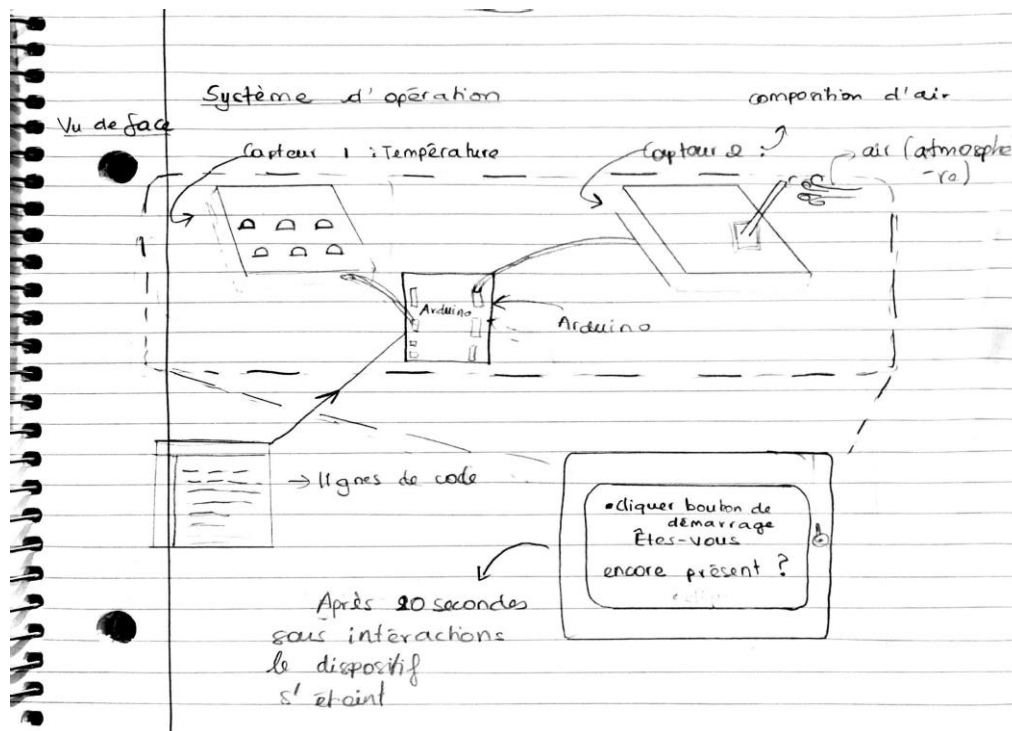 Système d'opération
composition d'air
Vu de face
Capteur 1 : Température
Capteur 2 :
air (atmosphe
-re)
Arduino
Arduino
→ lignes de code
•cliquer bouton de
démarrage
Êtes-vous
encore présent ?
Après 20 secondes
sans intéractions
le dispositif
s'éteint